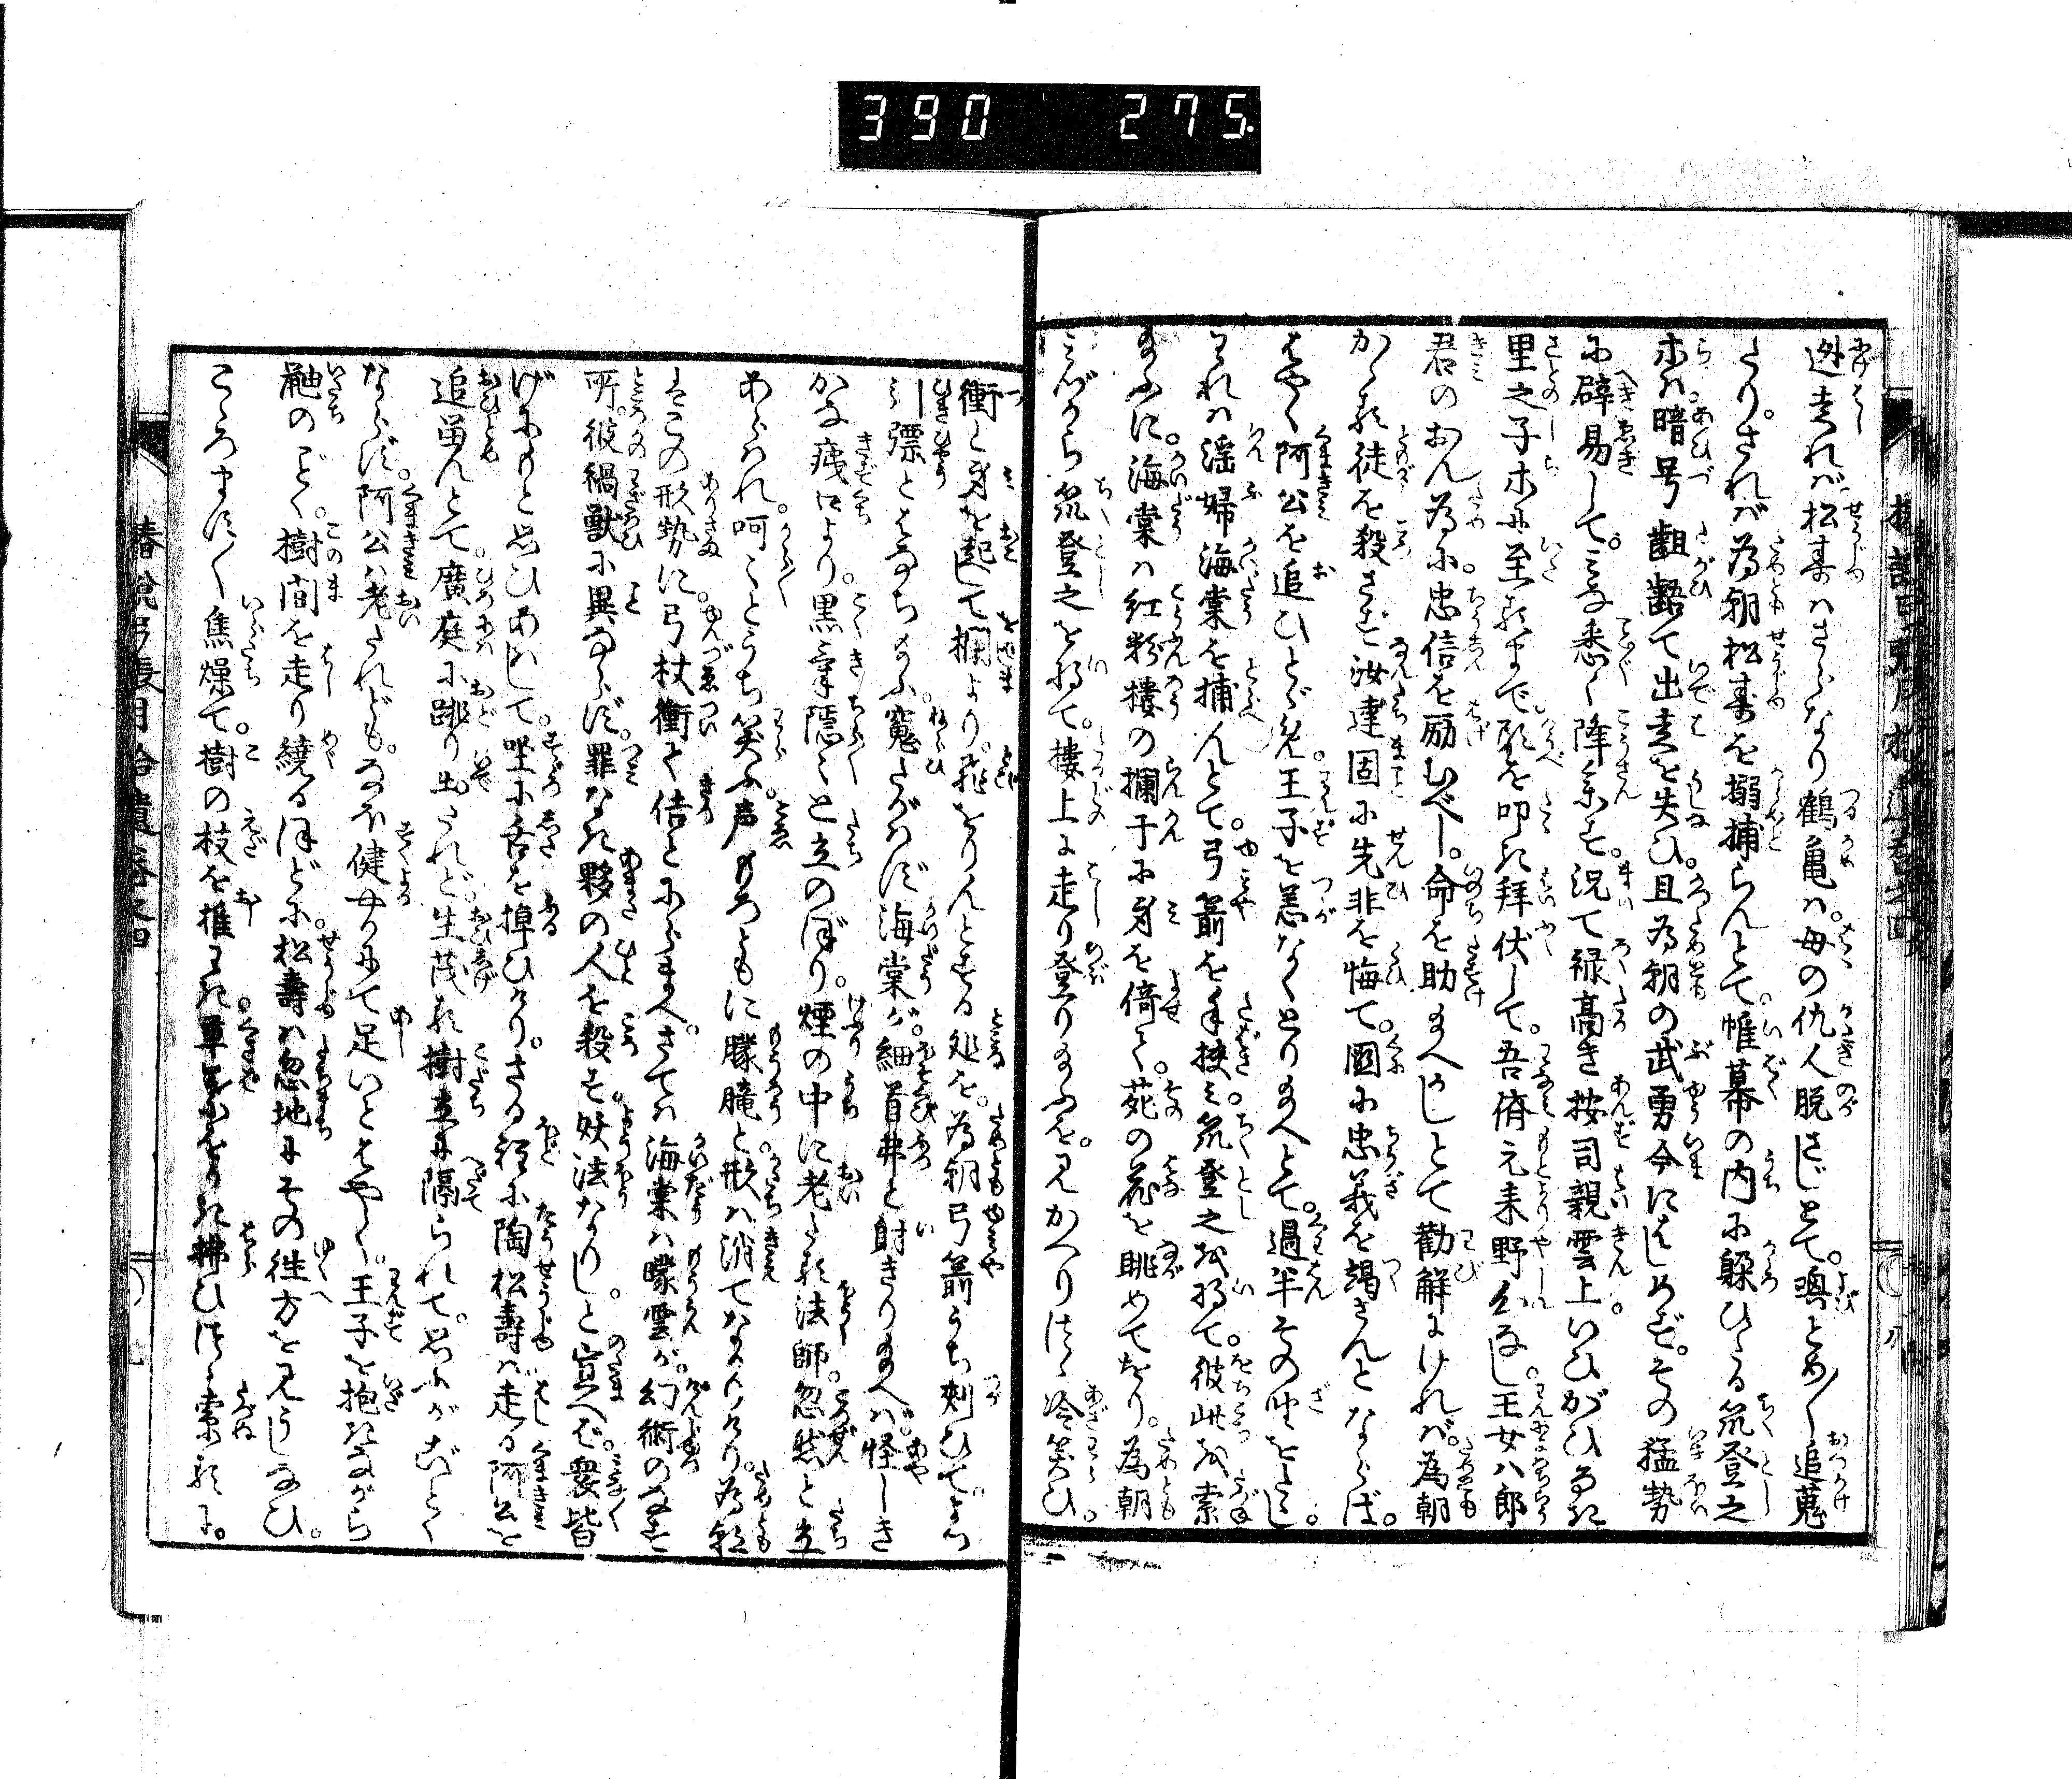 390 275
迯走れバ松壽ハさらなり鶴亀ハ母の仇人脱さじとて喚とめ／＼追蒐
たりされバ為朝松壽を搦捕らんとて帷幕の内に躱ひたる筑登之
ホハ暗号齟齬て出来を失ひ且為朝の武勇今にはじめずその猛勢
に辟易してみな悉く降参す況て禄高き按司親雲上いひがひなき
里之子ホに至るまで頭を叩き拝伏して吾儕元来野心なし王女八郎
君のおん為に忠信を励むべし命を助給へかしとて勧解にければ為朝
かゝる徒を殺さず汝達固に先非を悔て國に忠義を竭さんとならば
はやく阿公を追ひとゞめ王子を恙なくとり給へとて過半その坐をたゝし
われハ淫婦海棠を捕んとて弓箭を手挟み筑登之を将て彼此を索
給ふに海棠ハ紅粉樓の欄干に身を倚て苑の花を眺めてをり為朝
みづから筑登之を将て樓上に走り登り給ふを見かへりつゝ冷笑ひ
衝と身を起して欄より飛をりんとする処を為朝弓箭うち刺ひてよつ
引彯とはなち給ふ寃たがはず海棠が細首弗と射きり給へバ怪しき
かな疵口より黒氣隠々と立のぼり煙の中に老たる法師忽然と立
あらはれ呵々とうち笑ふ声もろともに朦朧と形ハ消てなくなりけり為朝
はこの形勢に弓杖衝て佶とにらまへさてハ海棠ハ曚雲が幻術のなす
所彼禍獣に異ならず罪なき夥の人を殺す妖法なりしと宣へバ衆皆
げにもと思ひあはして坐に舌を掉ひけりさる程に陶松壽ハ走る阿公を
追蒐んとて廣庭に跳り出たれど生茂る樹立に隔られて思ふがごとく
ならず阿公ハ老たれどもなほ健やかにて足いとはやく王子を抱きながら
鼬のごく樹間を走り繞るほどに松壽ハ忽地にその往方を見うしなひ
こゝろます／＼焦燥て樹の枝を推わき草をおしわけ拂ひつゝ索るに
椿説弓張月拾遺巻之四